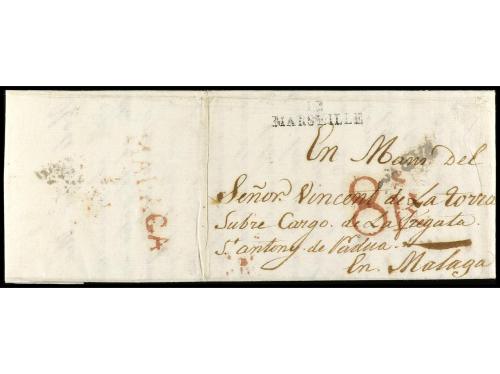 12
MARSEILLE
En Man del
Señor Vincent de La torre
8
Subre Cargo de La fregata
Sn antony de Padua
En Malaga
MALAGA